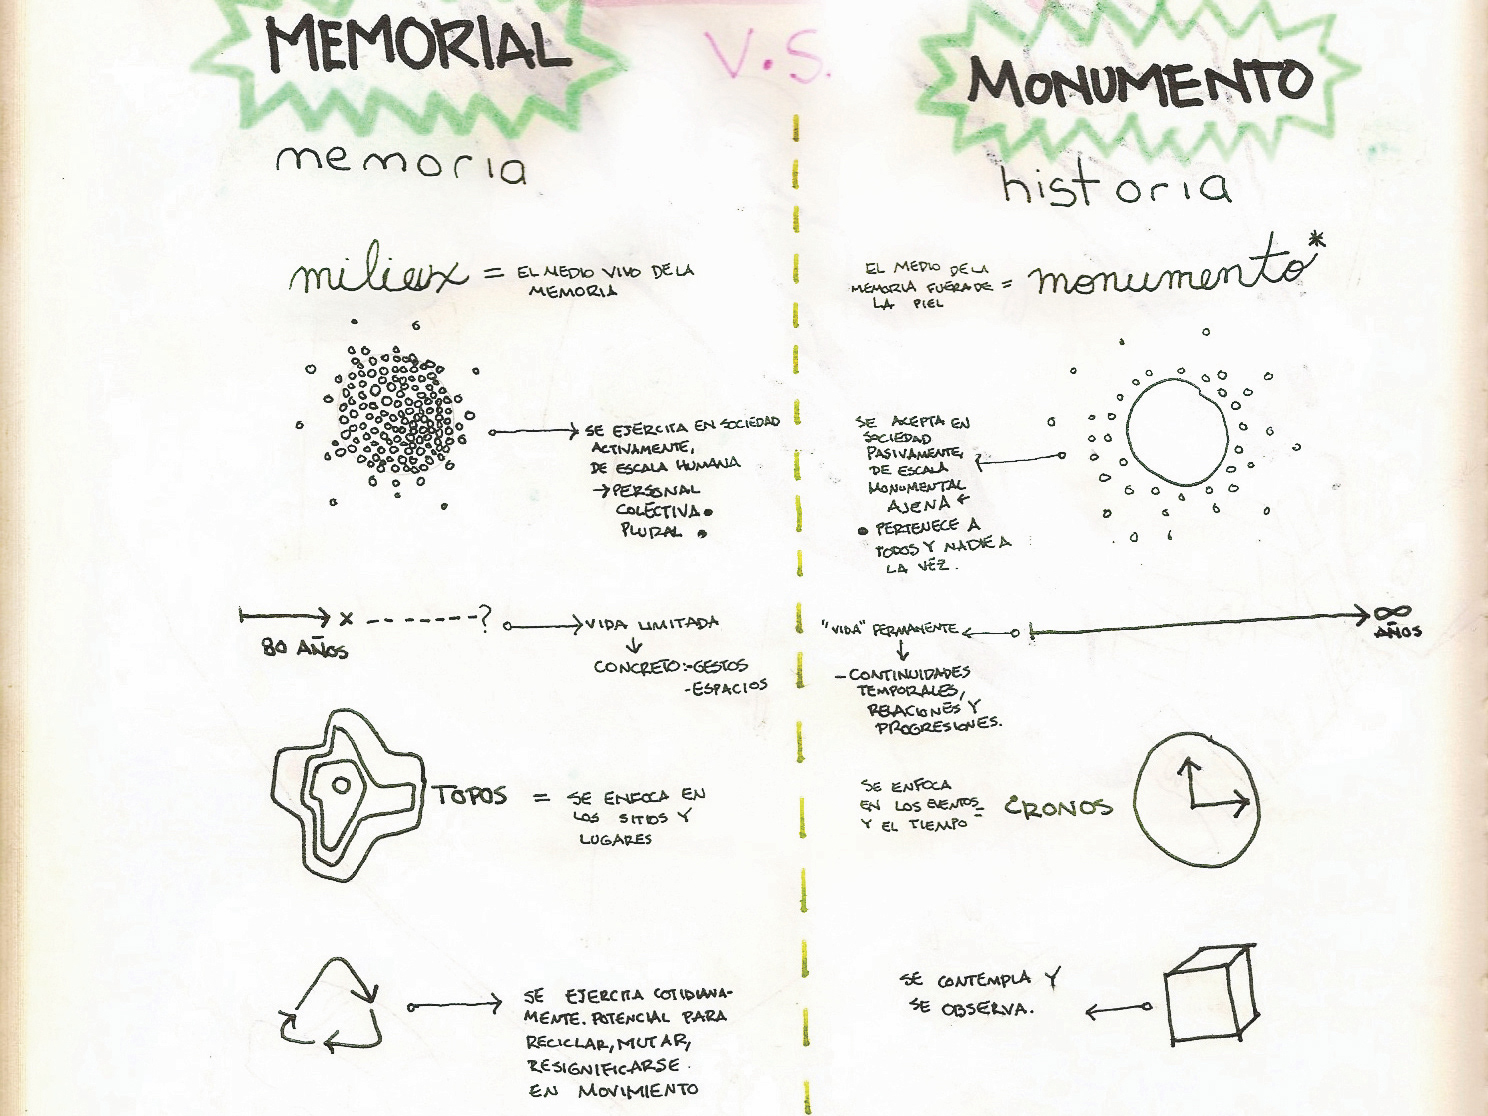 MEMORIAL
V.S.
MONUMENTO
memoria
historia
milieux = EL MEDIO VIVO DE LA
MEMORIA
EL MEDIO DE LA
MEMORIA FUERA DE = monumento*
LA PIEL
SE EJERCITA EN SOCIEDAD
ACTIVAMENTE,
DE ESCALA HUMANA
→ PERSONAL
COLECTIVA •
PLURAL •
SE ACEPTA EN
SOCIEDAD
PASIVAMENTE,
DE ESCALA
MONUMENTAL
AJENA ←
• PERTENECE A
TODOS Y NADIE A
LA VEZ.
x ------- ?
80 AÑOS
VIDA LIMITADA
CONCRETO: -GESTOS
-ESPACIOS
"VIDA" PERMANENTE
∞
AÑOS
- CONTINUIDADES
TEMPORALES,
RELACIONES Y
PROGRESIONES.
TOPOS = SE ENFOCA EN
LOS SITIOS Y
LUGARES
SE ENFOCA
EN LOS EVENTOS = CRONOS
Y EL TIEMPO
SE EJERCITA COTIDIANA-
MENTE. POTENCIAL PARA
RECICLAR, MUTAR,
RESIGNIFICARSE.
EN MOVIMIENTO
SE CONTEMPLA Y
SE OBSERVA.